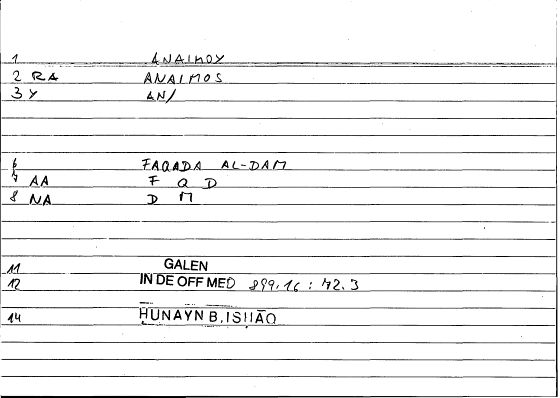 1 ANAIMOY
2 RA ANAIMOS
3 Y AN/
6 FAQADA AL-DAM
7 AA F Q D
8 NA D M
11 GALEN
12 IN DE OFF MED 899.16 : 72.3
14 HUNAYN B. ISHAQ